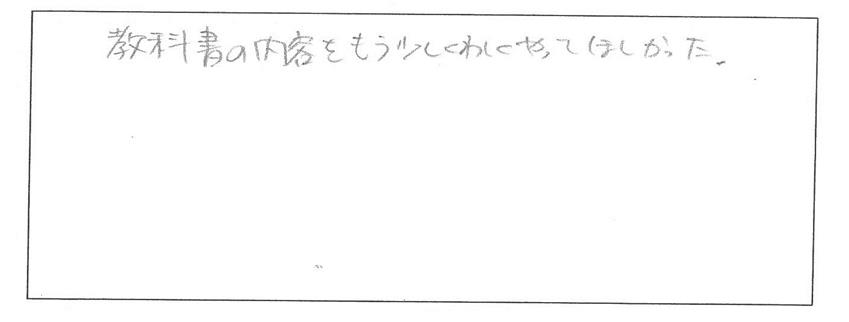 教科書の内容をもう少しくわしくやってほしかった.